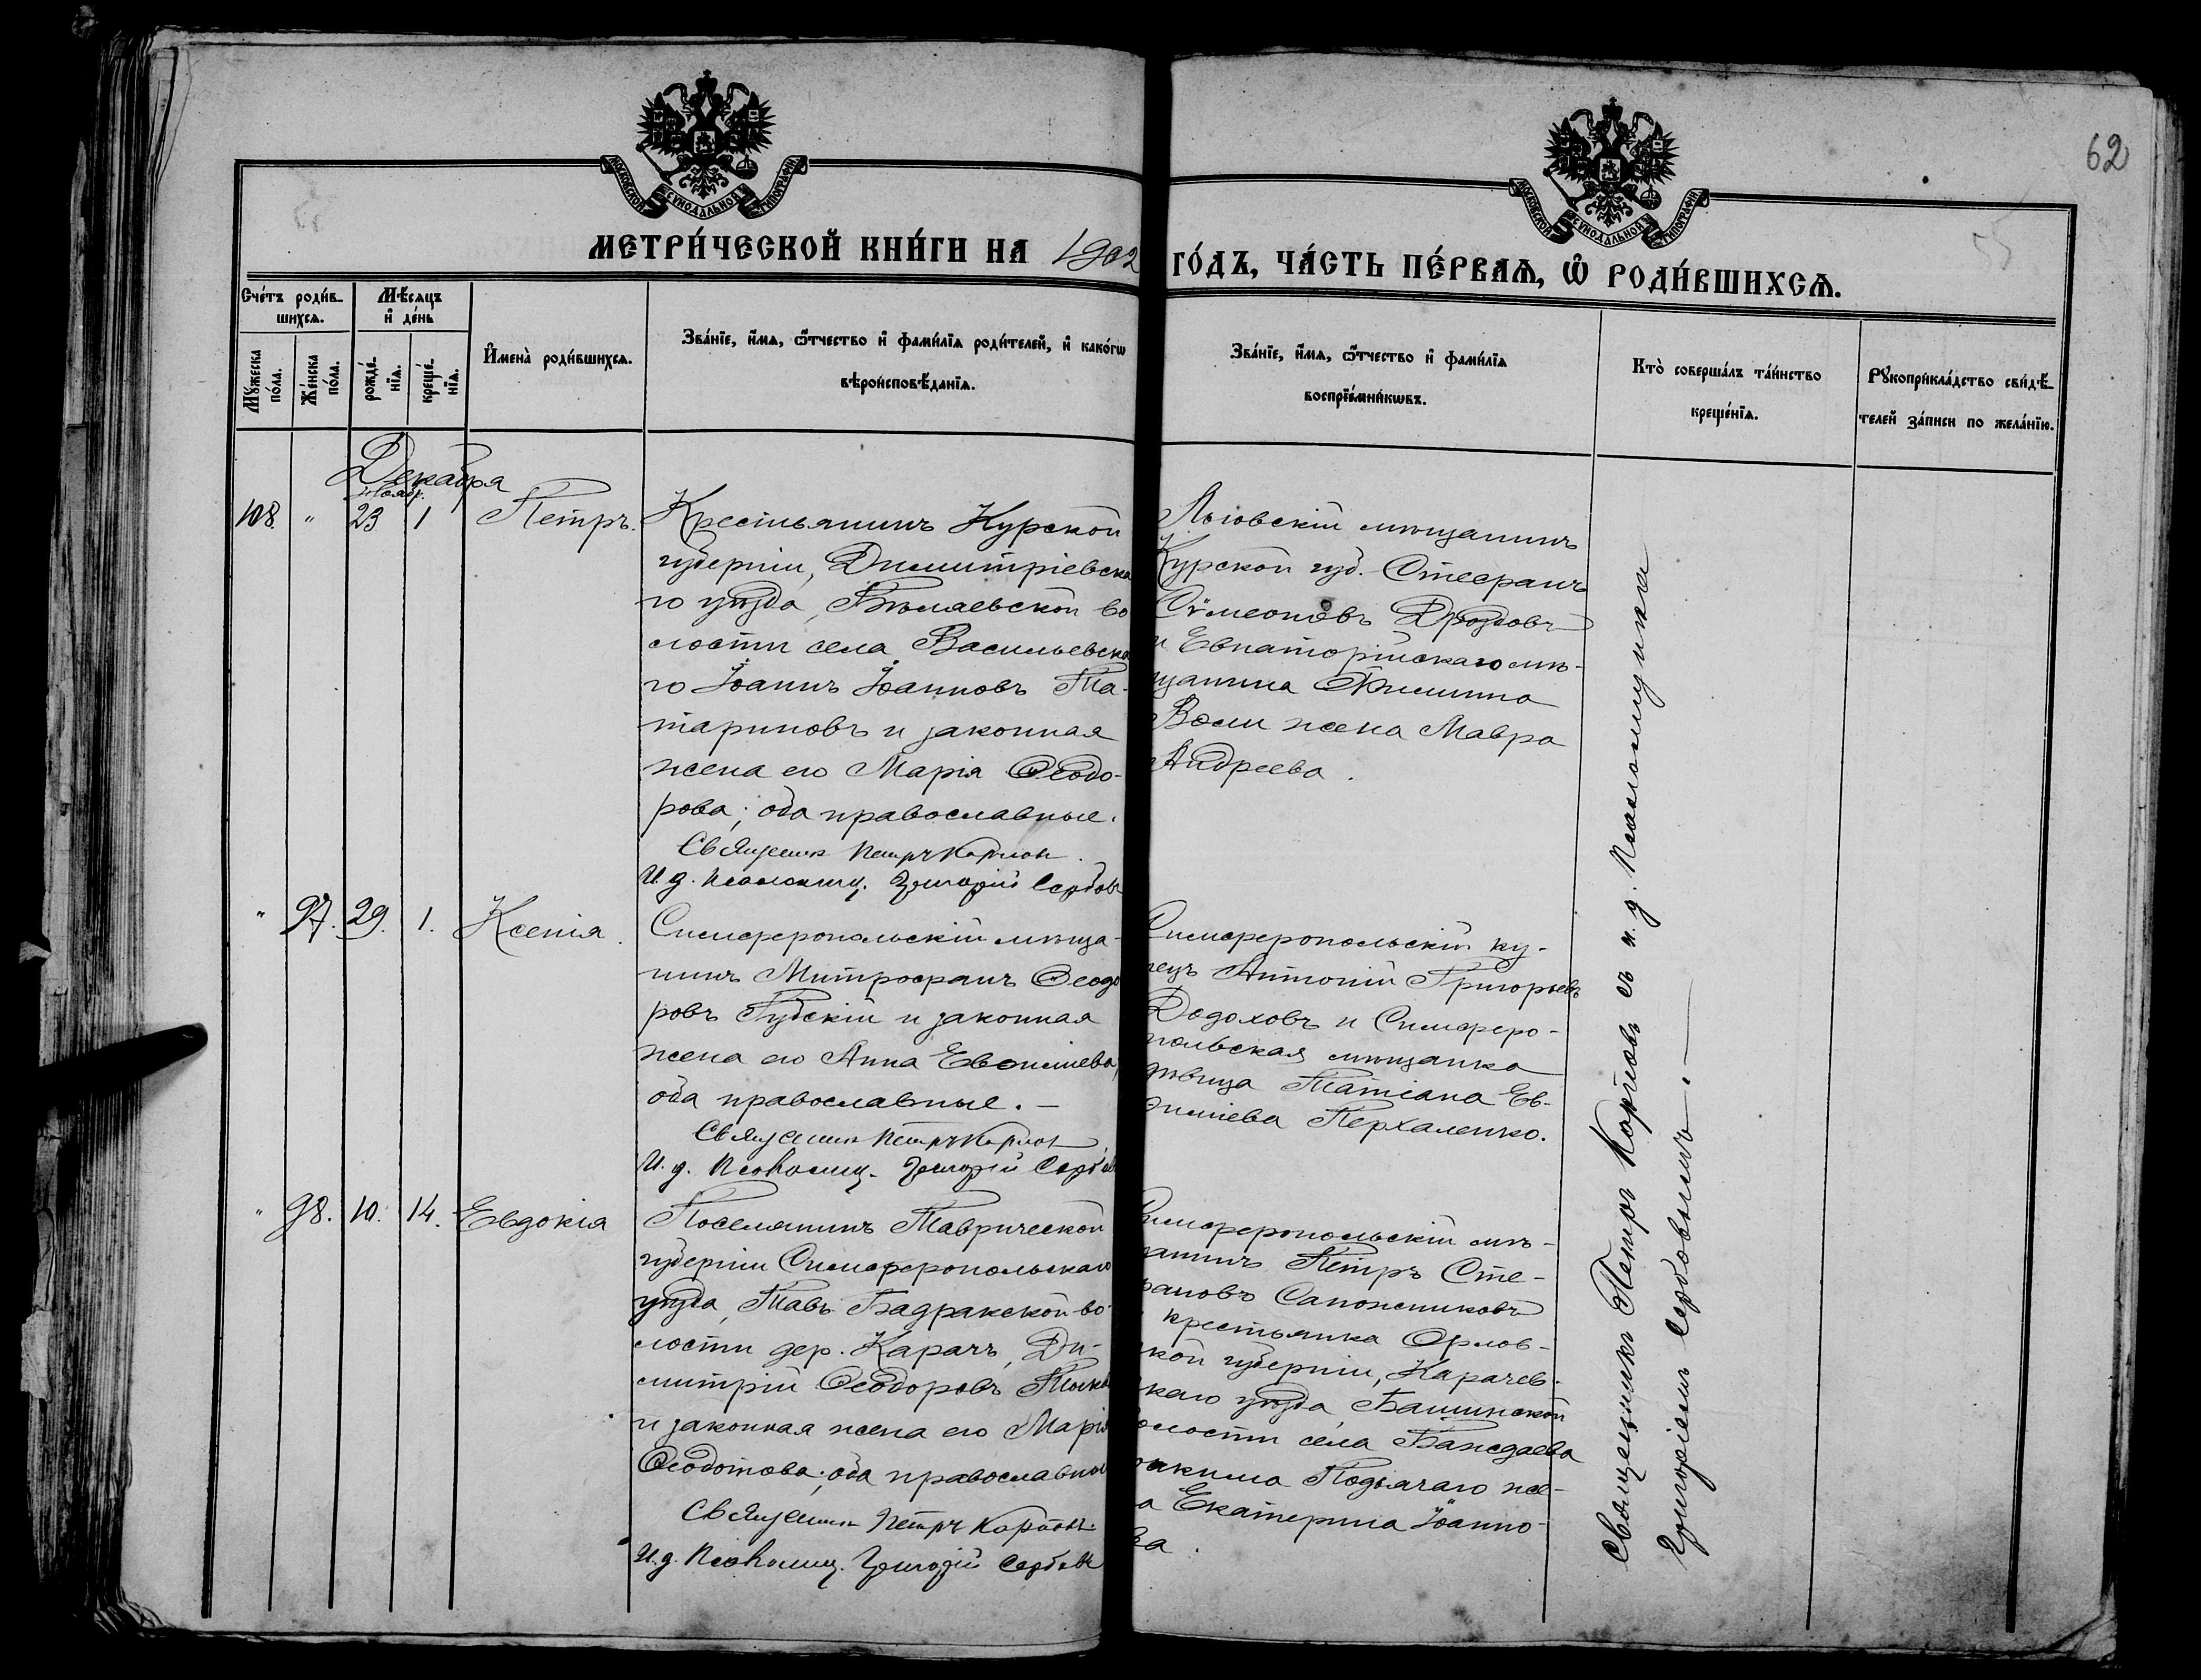 62
МОСКОВСКОЙ СѴНОДАЛЬНОЙ ТИПОГРАФІИ
МОСКОВСКОЙ СѴНОДАЛЬНОЙ ТИПОГРАФІИ
МЕТРИ́ЧЕСКОЙ КНИ́ГИ НА 1902 ГО́ДЪ, ЧА́СТЬ ПЕ́РВАѦ, Ѡ҆ РОДИ́ВШИХСѦ.
Сче́тъ роди́в-
шихсѧ.
Мꙋ́жеска по́ла.
Же́нска по́ла.
Мѣ́сѧцъ
и҆ де́нь
рожде́-
нїѧ.
креще́-
нїѧ.
И҆мена̀ роди́вшихсѧ.
Зва́нїе, и҆́мѧ, ѻ҆́тчество и҆ фами́лїѧ роди́телей, и҆ како́гѡ
вѣроисповѣ́данїѧ.
Зва́нїе, и҆́мѧ, ѻ҆́тчество и҆ фами́лїѧ
воспрїе́мникѡвъ.
Кто̀ соверша́лъ та́инство
креще́нїѧ.
Рꙋкоприкла́дство свидѣ́-
телей за́писи по жела́нїю.
Декабря
Ноябр.
108. " 23 1 Петръ.
Крестьянинъ Курской
губерніи, Димитріевска
го уѣзда, Бѣляевской во
лости села Васильевска
го Іоаннъ Іоанновъ Та-
тариновъ и законная
жена его Марія Ѳеодо-
рова; оба православные.
Священник Петръ Карпов
И. д. Псаломщ. Григорій Сербов
Льговскій мѣщанинъ
Курской губ. Стефанъ
Сѵмеоновъ Дроздовъ
и Евпаторійскаго мѣ-
щанина Филиппа
Воми жена Мавра
Андреева.
" 97. 29. 1. Ксенія.
Симферопольскій мѣща-
нинъ Митрофанъ Ѳеодо
ровъ Губскій и законная
жена его Анна Евѳиміева,
оба православные. —
Священник Петръ Карпов
И. д. Псаломщ. Григорій Сербов
Симферопольскій ку-
пецъ Антоній Григорьевъ
Додоховъ и Симферо-
польская мѣщанка
дѣвица Татіана Ев-
ѳиміева Перхаленко.
" 98. 10. 14. Евдокія
Поселянинъ Таврической
губерніи Симферопольскаго
уѣзда, Тавъ-Бадракской во-
лости дер. Карачъ, Ди-
митрій Ѳеодоровъ
и законная жена его Марія
Ѳеодотова; оба православные
Священник Петръ Карповъ
И. д. Псаломщ. Григорій Сербовъ
Симферопольскій мѣ-
щанинъ Петръ Сте-
фановъ Сапожниковъ
крестьянка Орлов-
ской губерніи, Карачев-
скаго уѣзда, Бошинской
волости села Бакѣдаева
Подьячаго же-
на Екатерина Іоанно-
ва.
Священникъ Петръ Карповъ съ и. д. Псаломщика
Григоріемъ Сербовымъ. —